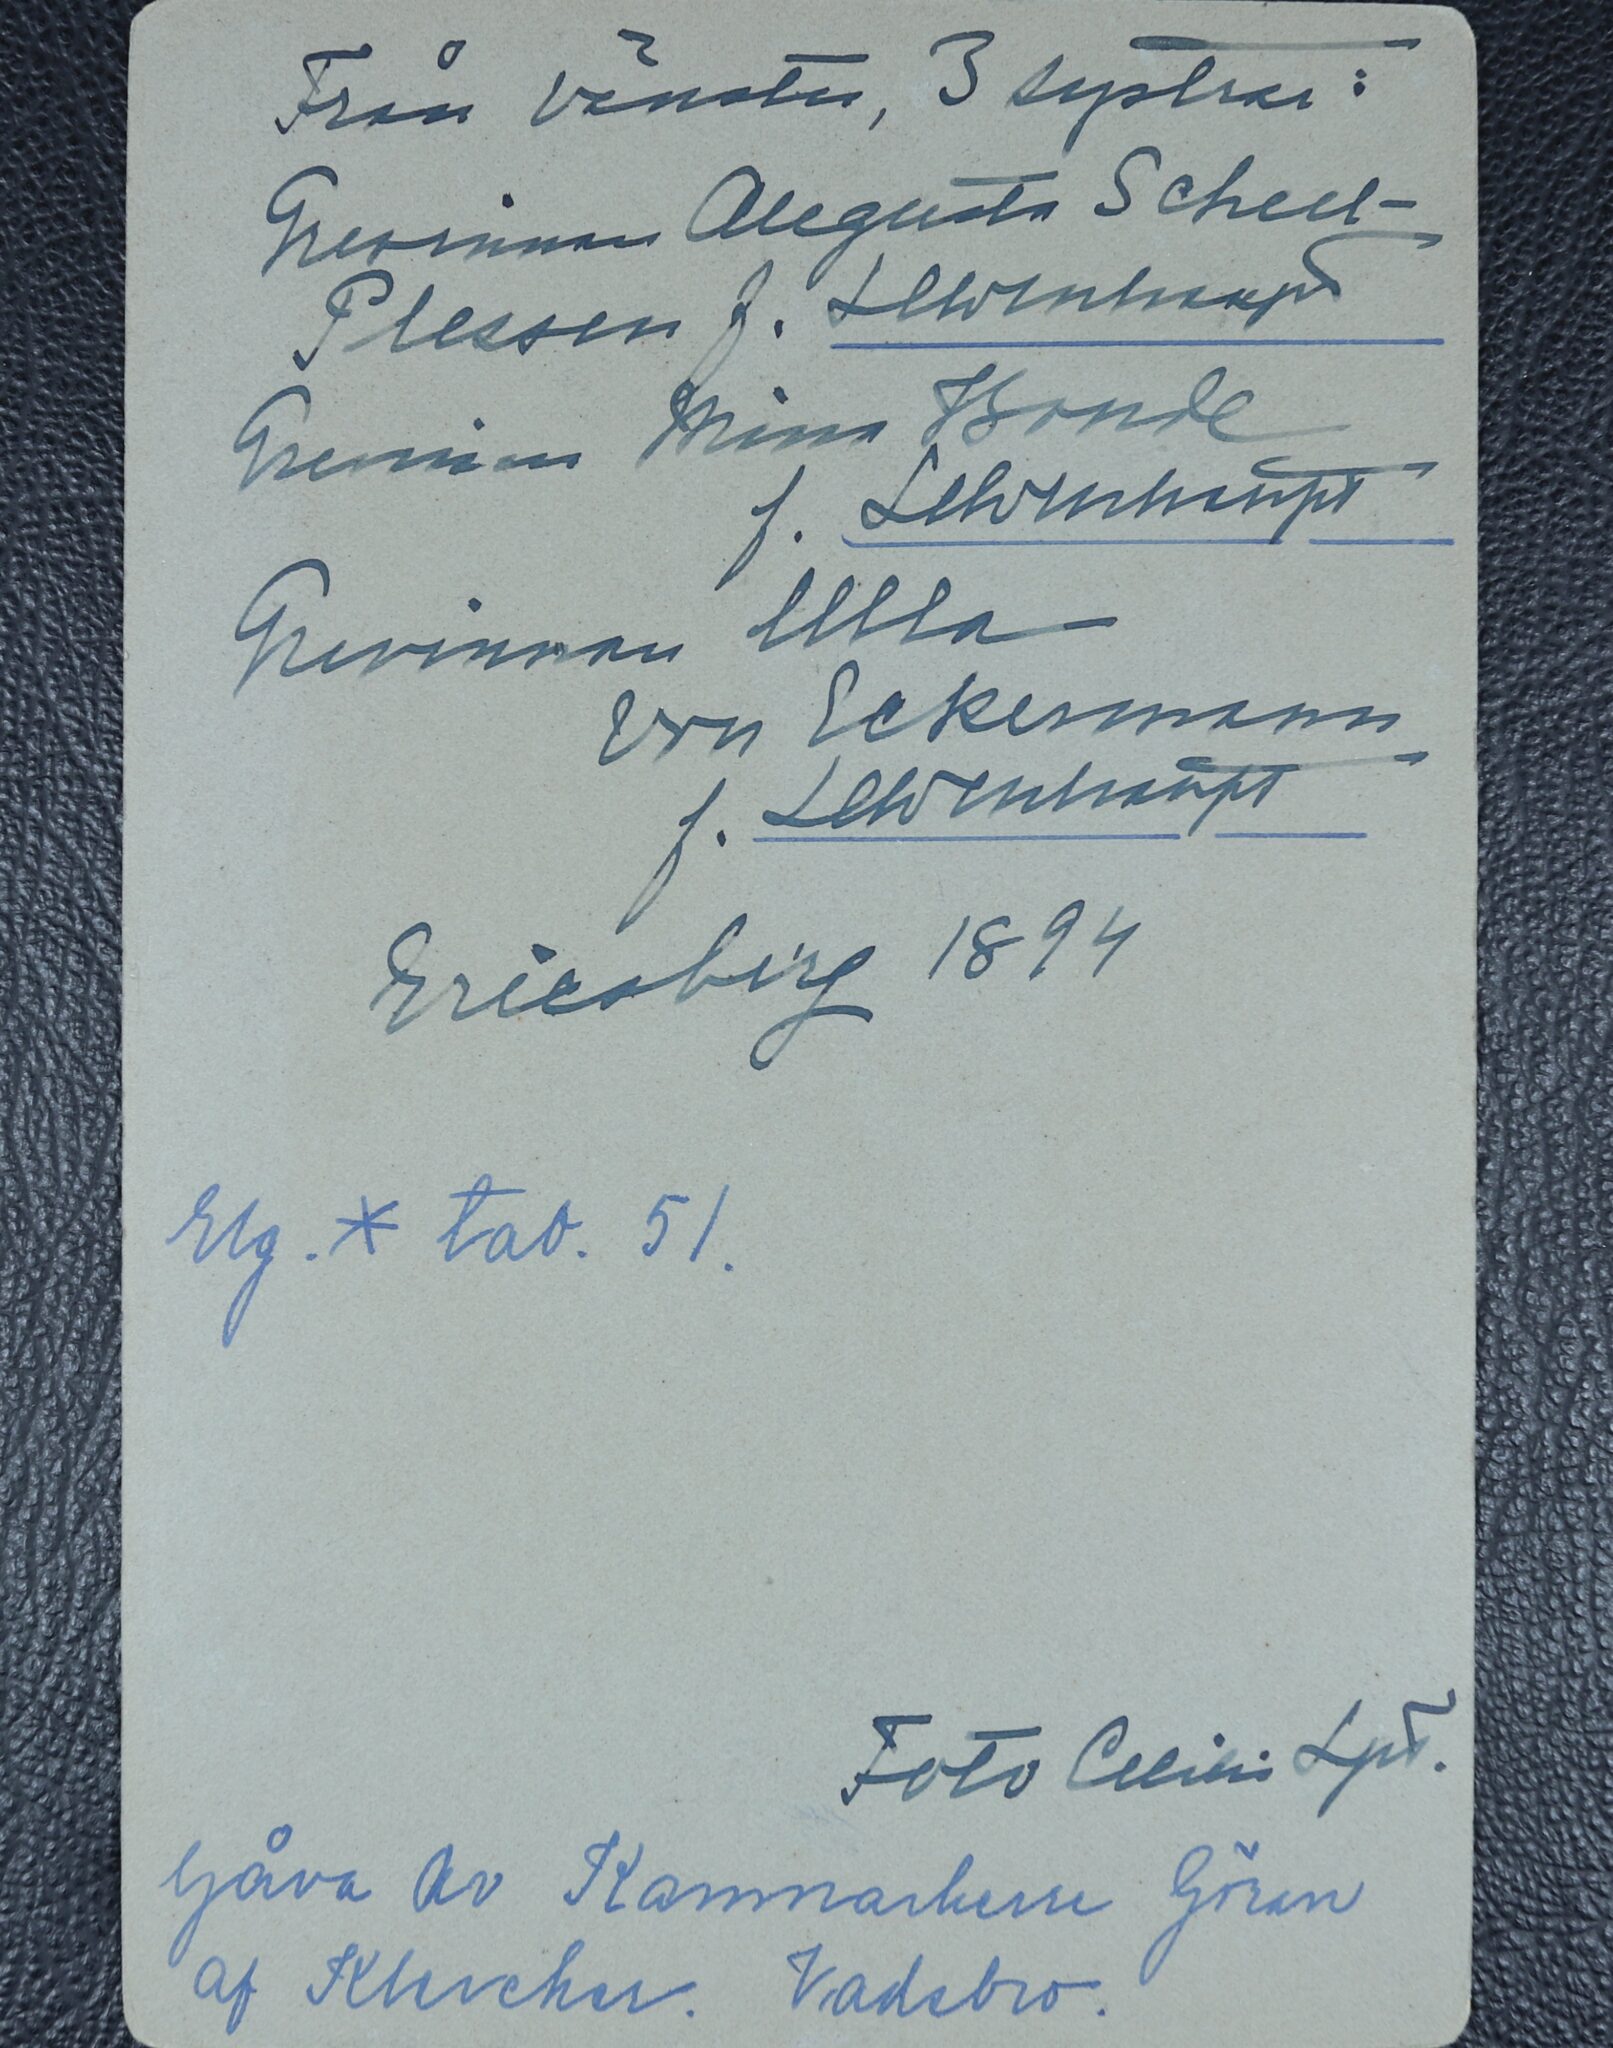 Från vänster, 3 systrar:
Grevinnan Augusta Scheel-
Plessen f. Lewenhaupt
Grevinnan Mina Bonde
f. Lewenhaupt
Grevinnan Ulla
von Eckermann
f. Lewenhaupt
Ericsberg 1894
Elg. * tab. 51.
Foto Cecilia Lpt.
Gåva av Kammarherre Göran
af Klercker. Vadsbro.